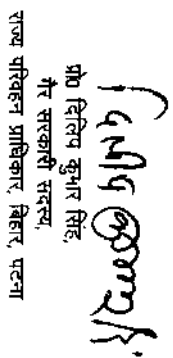 दिलीप कुमार सिंह
प्रो० दिलिप कुमार सिंह,
गैर सरकारी सदस्य,
राज्य परिवहन प्राधिकार, बिहार, पटना